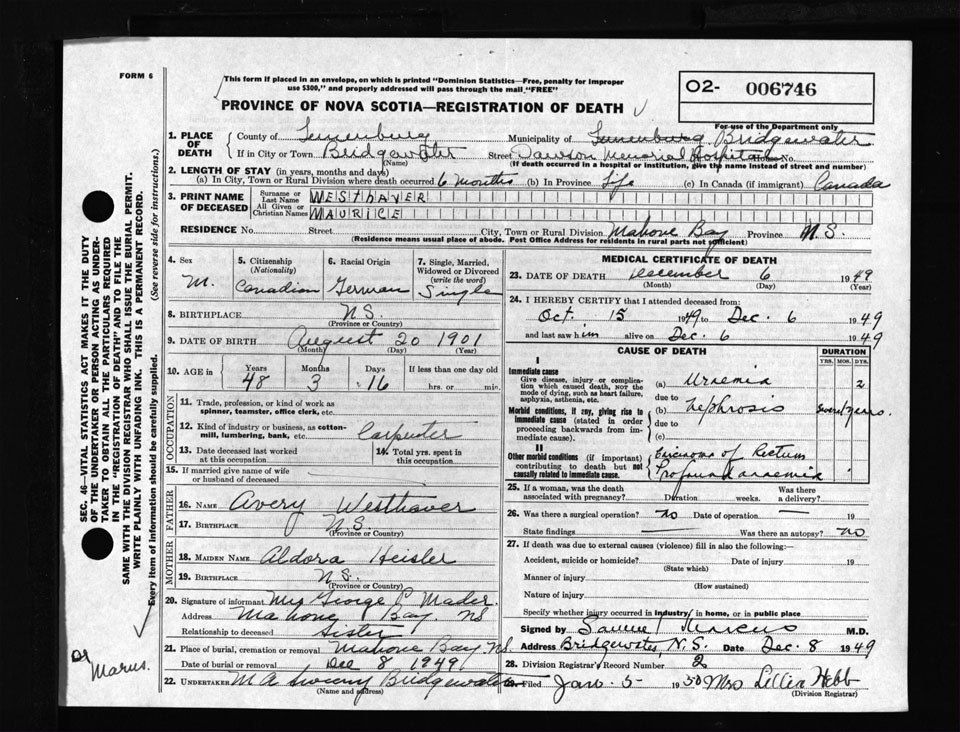 FORM 6
This form if placed in an envelope, on which is printed "Dominion Statistics—Free, penalty for improper
use $300," and properly addressed will pass through the mail "FREE"
PROVINCE OF NOVA SCOTIA—REGISTRATION OF DEATH
O2- 006746
For use of the Department only
1. PLACE OF DEATH
County of Lunenburg Municipality of Lunenburg Bridgewater
If in City or Town Bridgewater Street Dawson Memorial Hospital No.
(Name) (If death occurred in a hospital or institution, give the name instead of street and number)
2. LENGTH OF STAY (in years, months and days)
(a) In City, Town or Rural Division where death occurred 6 months (b) In Province Life (c) In Canada (if immigrant) Canada
3. PRINT NAME OF DECEASED
Surname or Last Name WESTHAVER
All Given or Christian Names MAURICE
RESIDENCE No. Street City, Town or Rural Division Mahone Bay Province N.S.
(Residence means usual place of abode. Post Office Address for residents in rural parts not sufficient)
4. Sex M.
5. Citizenship (Nationality) Canadian
6. Racial Origin German
7. Single, Married, Widowed or Divorced (write the word) Single
8. BIRTHPLACE N.S.
(Province or Country)
9. DATE OF BIRTH August 20 1901
(Month) (Day) (Year)
10. AGE in Years Months Days If less than one day old
48 3 16 hrs. or min.
OCCUPATION
11. Trade, profession or kind of work as spinner, teamster, office clerk, etc.
12. Kind of industry or business, as cotton-mill, lumbering, bank, etc. Carpenter
13. Date deceased last worked at this occupation
14. Total yrs. spent in this occupation
15. If married give name of wife or husband of deceased
FATHER
16. NAME Avery Westhaver
17. BIRTHPLACE N.S.
(Province or Country)
MOTHER
18. MAIDEN NAME Aldora Heisler
19. BIRTHPLACE N.S.
(Province or Country)
20. Signature of informant Mrs George P Mader.
Address Mahone Bay. NS
Relationship to deceased Sister
21. Place of burial, cremation or removal Mahone Bay N.S.
Date of burial or removal Dec 8 1949
22. UNDERTAKER M A Sweeny Bridgewater
(Name and address)
MEDICAL CERTIFICATE OF DEATH
23. DATE OF DEATH December 6 1949
(Month) (Day) (Year)
24. I HEREBY CERTIFY that I attended deceased from:
Oct. 15 1949 to Dec. 6 1949
and last saw him alive on Dec. 6 1949
CAUSE OF DEATH
DURATION
YRS. MOS. DYS.
I
Immediate cause
Give disease, injury or complication which caused death, NOT the mode of dying, such as heart failure, asphyxia, asthenia, etc.
(a) Uraemia 2
due to
Morbid conditions, if any, giving rise to immediate cause (stated in order proceeding backwards from immediate cause).
(b) Nephrosis Several years.
due to
(c)
II
Other morbid conditions (if important) contributing to death but not causally related to immediate cause.
Carcinoma of Rectum
Profound anaemia
25. If a woman, was the death associated with pregnancy? Duration weeks. Was there a delivery?
26. Was there a surgical operation? no Date of operation 19
State findings Was there an autopsy? no
27. If death was due to external causes (violence) fill in also the following:—
Accident, suicide or homicide? Date of injury 19
(State which)
Manner of injury
(How sustained)
Nature of injury
Specify whether injury occurred in industry, in home, or in public place
Signed by Samuel Marcus M.D.
Address Bridgewater N.S. Date Dec. 8 1949
28. Division Registrar's Record Number 2
29. Filed Jan. 5- 1950 Mrs Lillia Hebb
(Division Registrar)
SEC. 46—VITAL STATISTICS ACT MAKES IT THE DUTY
OF THE UNDERTAKER OR PERSON ACTING AS UNDER-
TAKER TO OBTAIN ALL THE PARTICULARS REQUIRED
IN THE "REGISTRATION OF DEATH" AND TO FILE THE
SAME WITH THE DIVISION REGISTRAR WHO SHALL ISSUE THE BURIAL PERMIT.
WRITE PLAINLY WITH UNFADING INK. THIS IS A PERMANENT RECORD.
Every item of information should be carefully supplied. (See reverse side for instructions.)
Dr Marus.